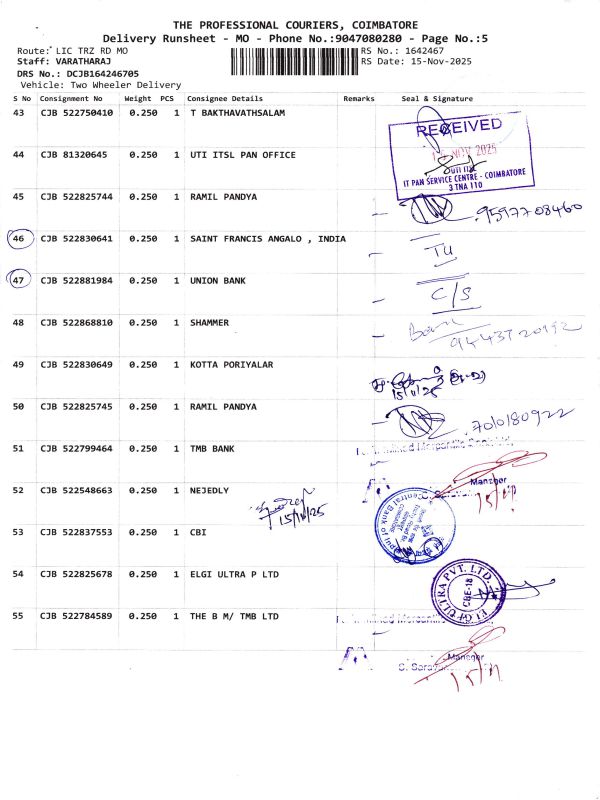 THE PROFESSIONAL COURIERS, COIMBATORE
Delivery Runsheet - MO - Phone No.:9047080280 - Page No.:5
Route: LIC TRZ RD MO
RS No.: 1642467
Staff: VARATHARAJ
RS Date: 15-Nov-2025
DRS No.: DCJB164246705
Vehicle: Two Wheeler Delivery
S No Consignment No Weight PCS Consignee Details Remarks Seal & Signature
43 CJB 522750410 0.250 1 T BAKTHAVATHSALAM
RECEIVED
NOV 2025
44 CJB 81320645 0.250 1 UTI ITSL PAN OFFICE
IT PAN SERVICE CENTRE - COIMBATORE
3 TNA 110
45 CJB 522825744 0.250 1 RAMIL PANDYA
9597708460
46 CJB 522830641 0.250 1 SAINT FRANCIS ANGALO , INDIA
TU
47 CJB 522881984 0.250 1 UNION BANK
C/S
48 CJB 522868810 0.250 1 SHAMMER
49 CJB 522830649 0.250 1 KOTTA PORIYALAR
15/11/25
50 CJB 522825745 0.250 1 RAMIL PANDYA
7010180922
51 CJB 522799464 0.250 1 TMB BANK
Manager
52 CJB 522548663 0.250 1 NEJEDLY
15/11/25
Central Bank of
53 CJB 522837553 0.250 1 CBI
54 CJB 522825678 0.250 1 ELGI ULTRA P LTD
ELGI ULTRA PVT. LTD.
CBE-18
55 CJB 522784589 0.250 1 THE B M/ TMB LTD
Manager